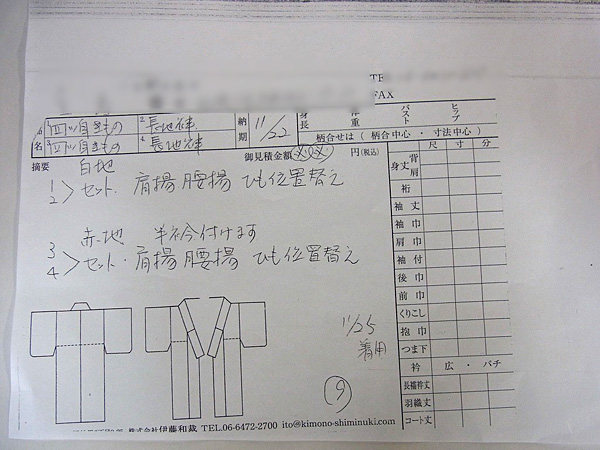 FAX
1四ツ身きもの 2長地袢 納期 11/22 身長 体重 バスト ヒップ
品名 3四ツ身きもの 4長地袢 柄合せは（柄合中心・寸法中心）
摘要 白地 御見積金額 円(税込) 尺 寸 分
1 2 > セット. 肩揚 腰揚 ひも位置替え
身丈 背 肩
裄
袖丈
3 4 > 赤地 半衿付けます
セット・肩揚 腰揚 ひも位置替え
袖巾
肩巾
袖付
後巾
前巾
くりこし
抱巾
つま下
11/25
着用
衿 広・バチ
長襦袢丈
羽織丈
コート丈
株式会社伊藤和裁 TEL.06-6472-2700 ito@kimono-shiminuki.com